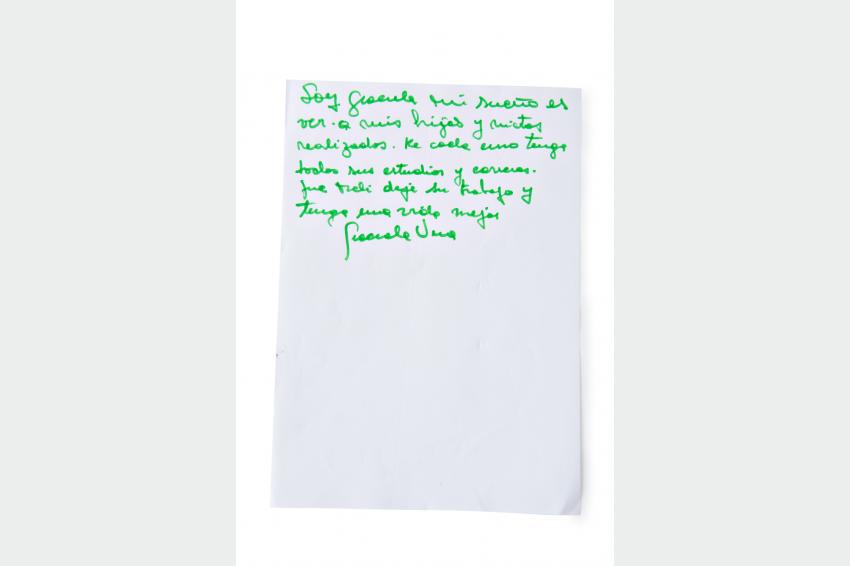 Soy Graciela mi sueño es
ver a mis hijas y nietos
realizados. Ke cada uno tenga
todos sus estudios y carreras.
Que deje su trabajo y
tenga una vida mejor
Graciela